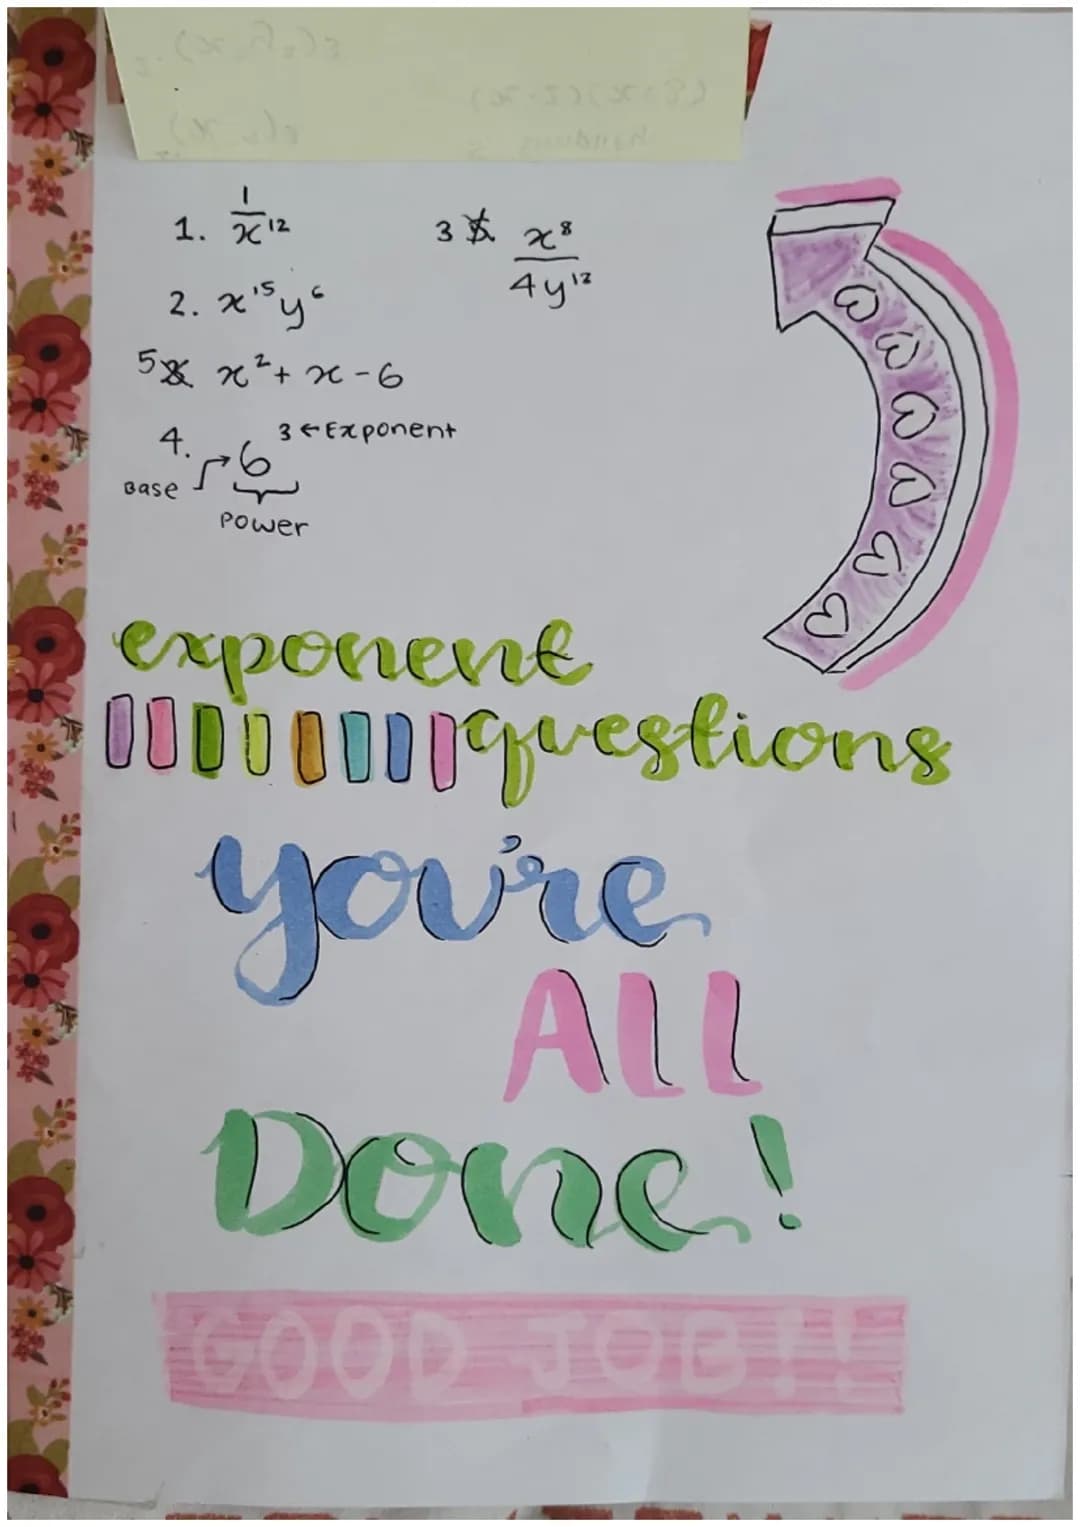 1. 1/x¹²
2. x¹⁵y⁶
3 x⁸/4y¹²
5 x² + x - 6
4. 6³ ← Exponent
Base
Power
exponent
questions
you're
ALL
Done!
GOOD JOB!!